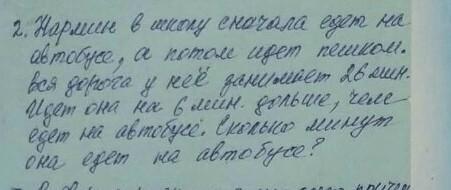 2. Нармин в школу сначала едет на
автобусе, а потом идет пешком.
Вся дорога у неё занимает 26 мин.
Идет она на 6 мин. дольше, чем
едет на автобусе. Сколько минут
она едет на автобусе?